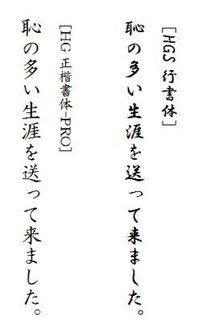 [HGS 行書体]
恥の多い生涯を送って来ました。
[HG 正楷書体-PRO]
恥の多い生涯を送って来ました。